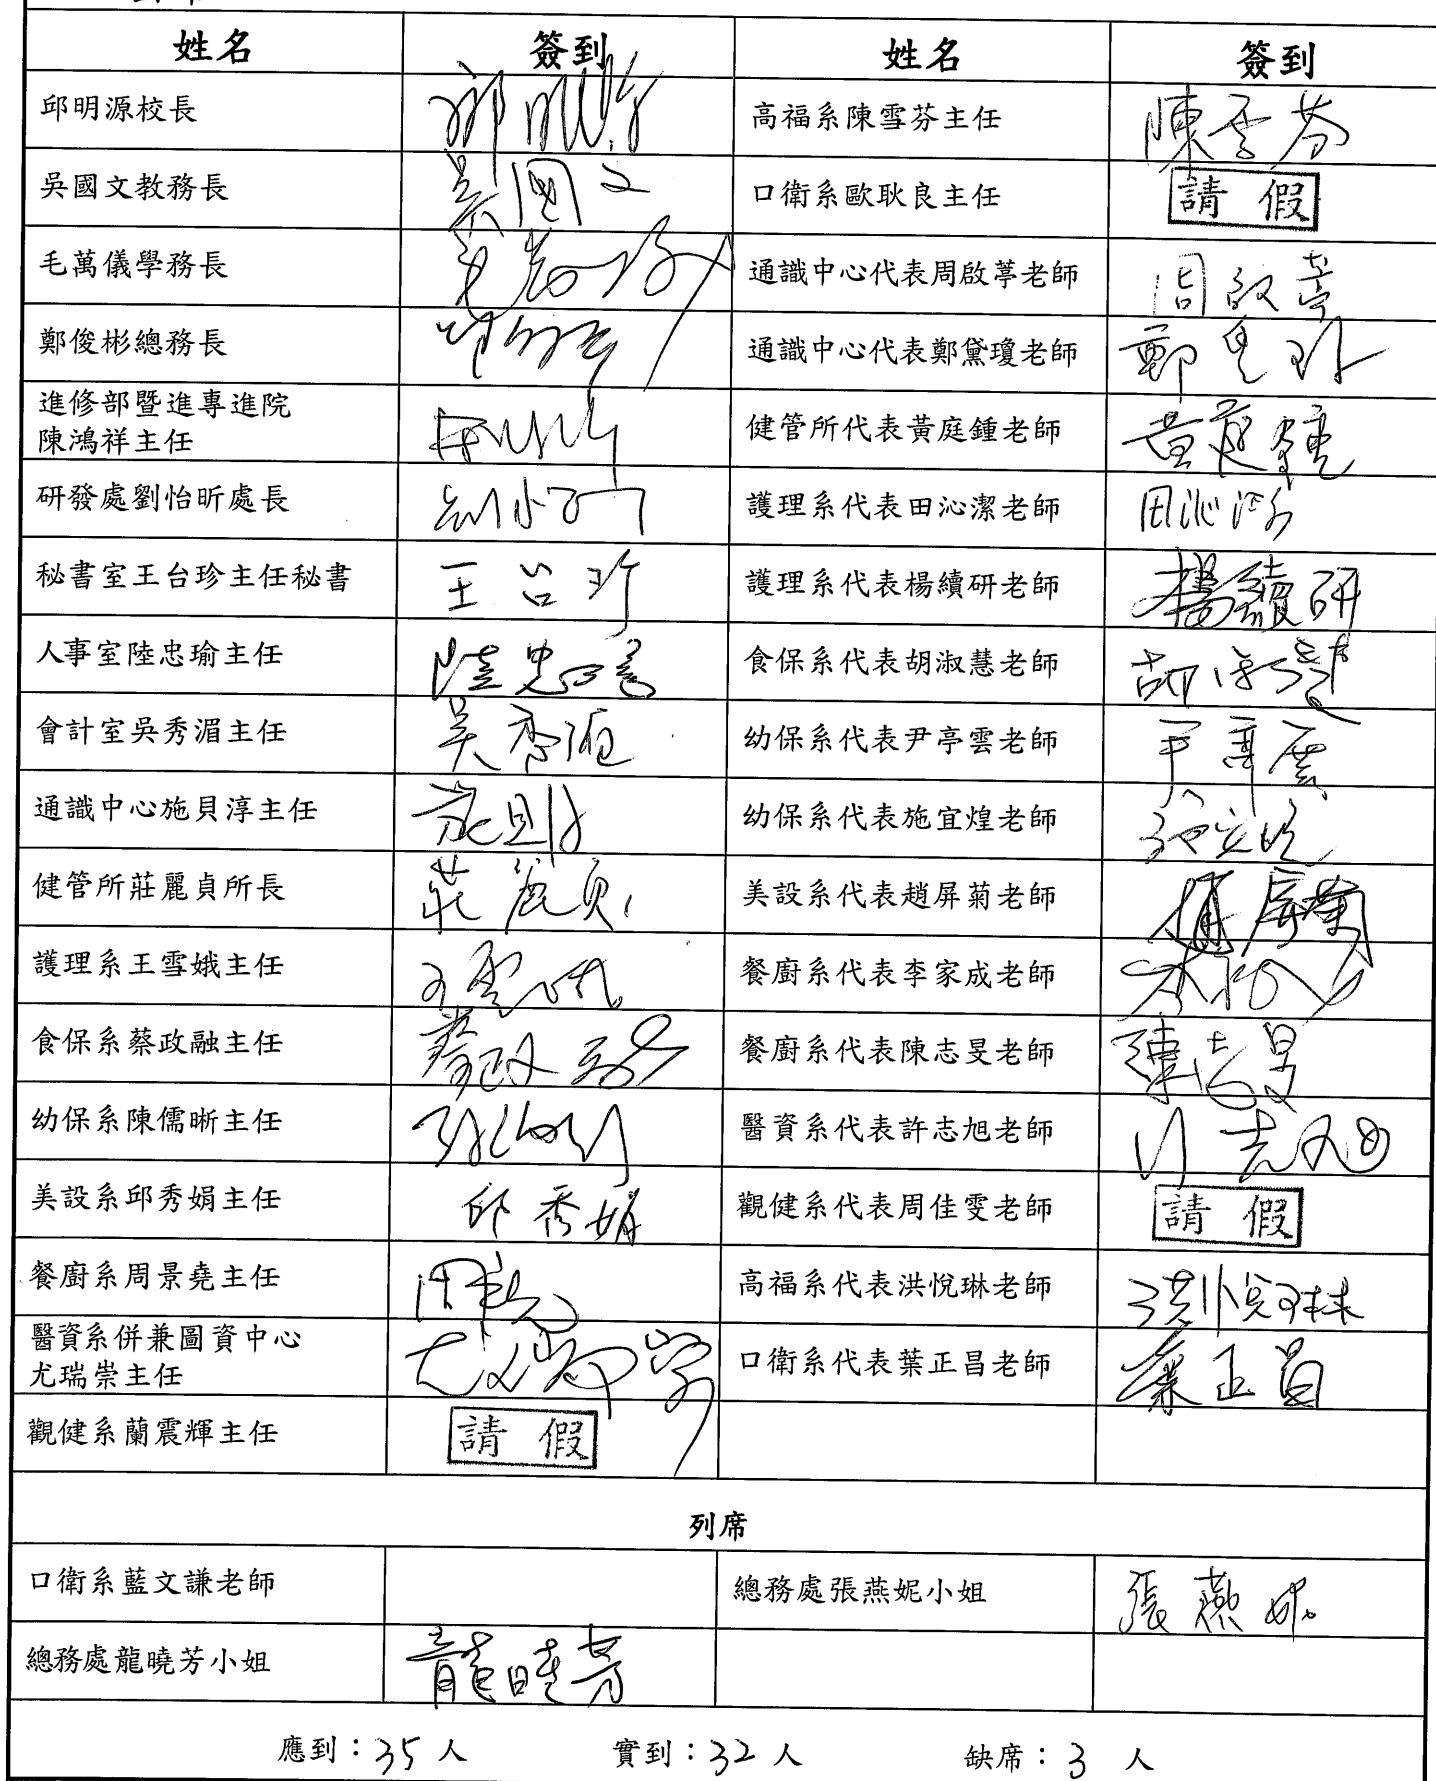 姓名 簽到 姓名 簽到
邱明源校長 邱明源 高福系陳雪芬主任 陳雪芬
吳國文教務長 吳國文 口衛系歐耿良主任 請 假
毛萬儀學務長 毛萬儀 通識中心代表周啟葶老師 周啟葶
鄭俊彬總務長 通識中心代表鄭黛瓊老師 鄭黛瓊
進修部暨進專進院
陳鴻祥主任 健管所代表黃庭鍾老師 黃庭鍾
研發處劉怡昕處長 劉怡昕 護理系代表田沁潔老師 田沁潔
秘書室王台珍主任秘書 王台珍 護理系代表楊續研老師 楊續研
人事室陸忠瑜主任 陸忠瑜 食保系代表胡淑慧老師 胡淑慧
會計室吳秀湄主任 吳秀湄 幼保系代表尹亭雲老師 尹亭雲
通識中心施貝淳主任 施貝淳 幼保系代表施宜煌老師 施宜煌
健管所莊麗貞所長 莊麗貞 美設系代表趙屏菊老師 趙屏菊
護理系王雪娥主任 王雪娥 餐廚系代表李家成老師
食保系蔡政融主任 蔡政融 餐廚系代表陳志旻老師 陳志旻
幼保系陳儒晰主任 陳儒晰 醫資系代表許志旭老師 許志旭
美設系邱秀娟主任 邱秀娟 觀健系代表周佳雯老師 請 假
餐廚系周景堯主任 周景堯 高福系代表洪悅琳老師 洪悅琳
醫資系併兼圖資中心
尤瑞崇主任 尤瑞崇 口衛系代表葉正昌老師 葉正昌
觀健系蘭震輝主任 請 假
列席
口衛系藍文謙老師 總務處張燕妮小姐 張燕妮
總務處龍曉芳小姐 龍曉芳
應到：35 人 實到：32 人 缺席：3 人